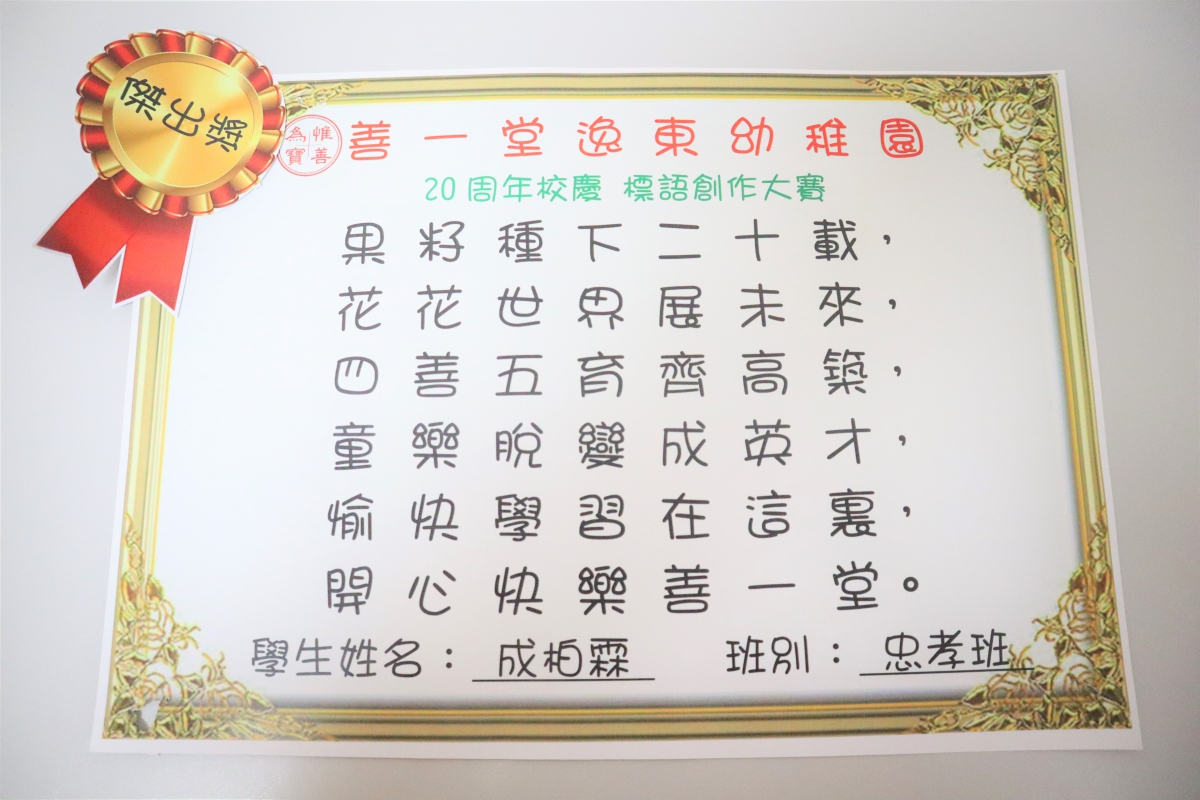 傑出獎
惟善為寶
善一堂逸東幼稚園
20周年校慶 標語創作大賽
果籽種下二十載，
花花世界展未來，
四善五育齊高築，
童樂脫變成英才，
愉快學習在這裏，
開心快樂善一堂。
學生姓名：成柏霖 班別：忠孝班